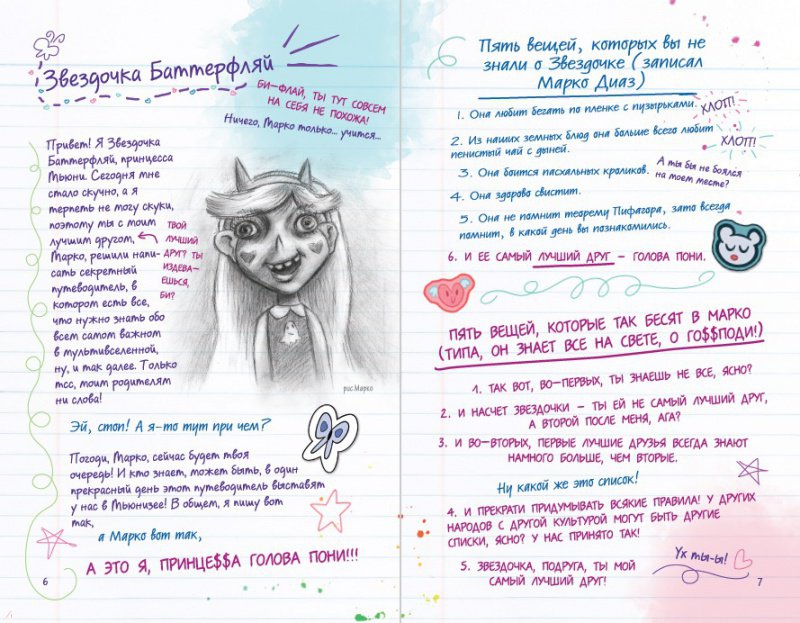 Звездочка Баттерфляй
БИ-ФЛАЙ, ТЫ ТУТ СОВСЕМ
НА СЕБЯ НЕ ПОХОЖА!
Ничего, Марко только... учится...
Привет! Я Звездочка
Баттерфляй, принцесса
Мьюни. Сегодня мне
стало скучно, а я
терпеть не могу скуки,
поэтому мы с моим
лучшим другом,
Марко, решили напи-
сать секретный
путеводитель, в
котором есть все,
что нужно знать обо
всем самом важном
в мультивселенной,
ну, и так далее. Только
тсс, моим родителям
ни слова!
ТВОЙ
ЛУЧШИЙ
ДРУГ? ТЫ
ИЗДЕВА-
ЕШЬСЯ,
БИ?
рис.Марко
Эй, стоп! А я-то тут при чем?
Погоди, Марко, сейчас будет твоя
очередь! И кто знает, может быть, в один
прекрасный день этот путеводитель выставят
у нас в Мьюнизее! В общем, я пишу вот
так,
а Марко вот так,
А ЭТО Я, ПРИНЦЕ$$А ГОЛОВА ПОНИ!!!
6
Пять вещей, которых вы не
знали о Звездочке (записал
Марко Диаз)
1. Она любит бегать по пленке с пузырьками.
ХЛОП!
2. Из наших земных блюд она больше всего любит
пенистый чай с дыней.
ХЛОП!
3. Она боится пасхальных кроликов.
А ты бы не боялся
на моем месте?
4. Она здорово свистит.
5. Она не помнит теорему Пифагора, зато всегда
помнит, в какой день вы познакомились.
6. И ЕЕ САМЫЙ ЛУЧШИЙ ДРУГ – ГОЛОВА ПОНИ.
ПЯТЬ ВЕЩЕЙ, КОТОРЫЕ ТАК БЕСЯТ В МАРКО
(ТИПА, ОН ЗНАЕТ ВСЕ НА СВЕТЕ, О ГО$$ПОДИ!)
1. ТАК ВОТ, ВО-ПЕРВЫХ, ТЫ ЗНАЕШЬ НЕ ВСЕ, ЯСНО?
2. И НАСЧЕТ ЗВЕЗДОЧКИ – ТЫ ЕЙ НЕ САМЫЙ ЛУЧШИЙ ДРУГ,
А ВТОРОЙ ПОСЛЕ МЕНЯ, АГА?
3. И ВО-ВТОРЫХ, ПЕРВЫЕ ЛУЧШИЕ ДРУЗЬЯ ВСЕГДА ЗНАЮТ
НАМНОГО БОЛЬШЕ, ЧЕМ ВТОРЫЕ.
Ну какой же это список!
4. И ПРЕКРАТИ ПРИДУМЫВАТЬ ВСЯКИЕ ПРАВИЛА! У ДРУГИХ
НАРОДОВ С ДРУГОЙ КУЛЬТУРОЙ МОГУТ БЫТЬ ДРУГИЕ
СПИСКИ, ЯСНО? У НАС ПРИНЯТО ТАК!
5. ЗВЕЗДОЧКА, ПОДРУГА, ТЫ МОЙ
САМЫЙ ЛУЧШИЙ ДРУГ!
Ух ты-ы!
7